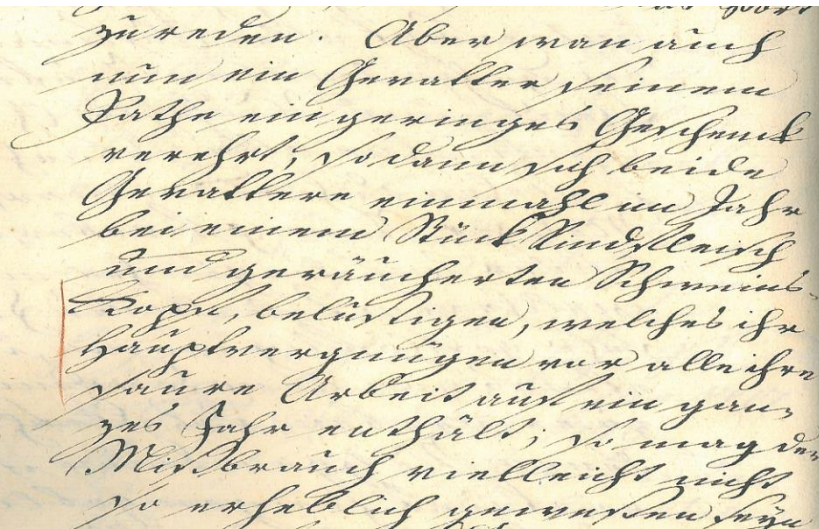 zu reden. Aber wan auch
nun ein Gevatter seinem
Pathe ein geringes Geschenk
verehrt, so dann sich beide
Gevattere einmahl im Jahr
bei einem Stück Rindfleisch
und geräucherten Schweins-
Kopf, belustigen, welches ihr
Hauptvergnügen vor alle ihre
saure Arbeit auf ein gan-
zes Jahr enthält; so mag der
Mißbrauch vielleicht nicht
so erheblich gewesen seyn